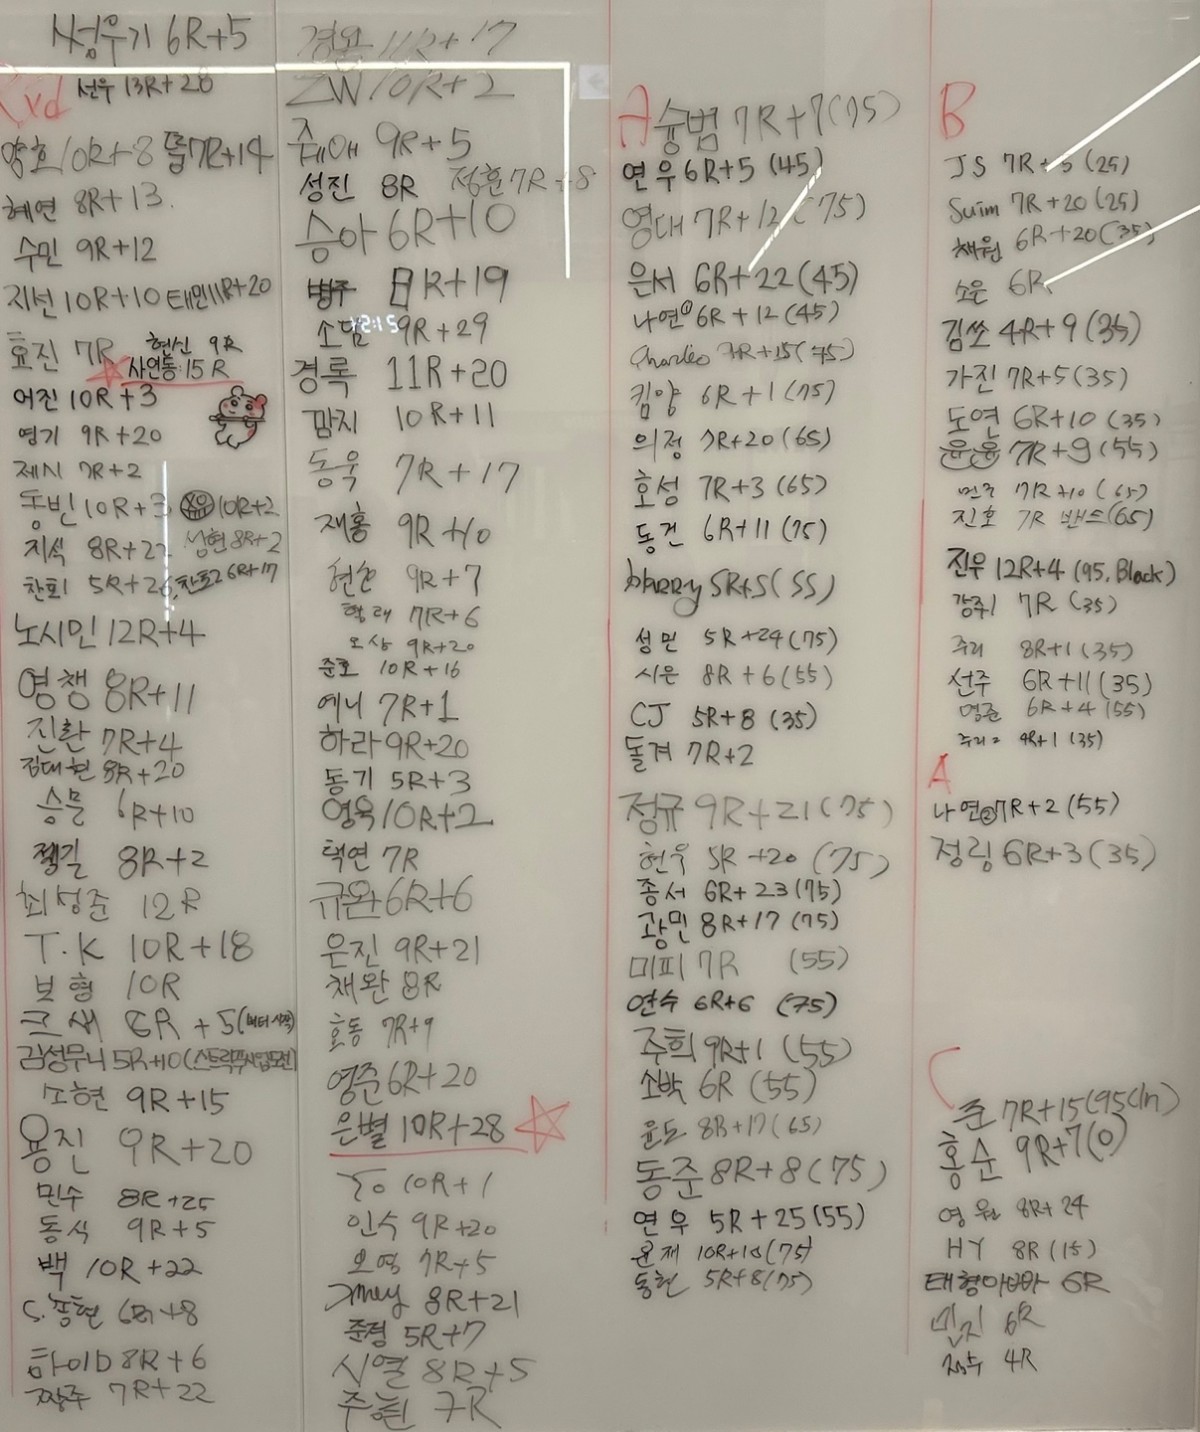 썽우기 6R+5
Rxd
선우 13R+28
양호 10R+8 뚭 7R+14
혜연 8R+13.
수민 9R+12
지선 10R+10 태민 11R+20
효진 7R 현신 9R
사연동:15R
어진 10R+3
영기 9R+20
제시 7R+2
동빈 10R+3 10R+2
지석 8R+22 성현 8R+2
찬희 5R+26, 찬희2 6R+17
노시민 12R+4
영챙 8R+11
진환 7R+4
김대현 8R+20
승문 6R+10
젤길 8R+2
최성준 12R
T.K 10R+18
보형 10R
크새 6R+5
김성무니 5R+10
소현 9R+15
용진 9R+20
민수 8R+25
동석 9R+5
백 10R+22
S.종현 6R+8
하이D 8R+6
짱주 7R+22
경용 11R+17
ZW 10R+2
줴애 9R+5
성진 8R 정훈 7R+8
승아 6R+10
병주 8R+19
소담 9R+29
경록 11R+20
깜지 10R+11
동욱 7R+17
재홍 9R+10
현순 9R+7
형래 7R+6
오상 9R+20
준호 10R+16
예니 7R+1
하라 9R+20
동기 5R+3
영욱 10R+2
택연 7R
규완 6R+6
은진 9R+21
채완 8R
효동 7R+9
영준 6R+20
은별 10R+28
10R+1
인수 9R+20
오영 7R+5
8R+21
준정 5R+7
시열 8R+5
주현 7R
A
슝범 7R+7(75)
연우 6R+5 (45)
영대 7R+12 (75)
은서 6R+22 (45)
나연① 6R+12 (45)
Charles 7R+15 (75)
킴양 6R+1 (75)
의정 7R+20 (65)
호성 7R+3 (65)
동건 6R+11 (75)
harry 5R+5 (55)
성민 5R+24 (75)
시은 8R+6 (55)
CJ 5R+8 (35)
돌겨 7R+2
정규 9R+21 (75)
현우 5R+20 (75)
종서 6R+23 (75)
광민 8R+17 (75)
미피 7R (55)
연수 6R+6 (75)
주희 9R+1 (55)
소박 6R (55)
윤도 8R+17 (65)
동준 8R+8 (75)
연우 5R+25 (55)
윤제 10R+10 (75)
동현 5R+8 (75)
B
JS 7R+5 (25)
Suim 7R+20 (25)
채원 6R+20 (35)
소은 6R
김쏘 4R+9 (35)
가진 7R+5 (35)
도연 6R+10 (35)
윤윤 7R+9 (55)
민주 7R+10 (65)
진호 7R 밴드 (65)
진우 12R+4 (95, Black)
강쥐 7R (35)
주리 8R+1 (35)
선주 6R+11 (35)
명준 6R+4 (55)
주리2 4R+1 (35)
A
나연② 7R+2 (55)
정링 6R+3 (35)
C
준 7R+15 (95cm)
홍순 9R+7 (0)
영원 8R+24
HY 8R (15)
태형아빠 6R
민지 6R
정수 4R